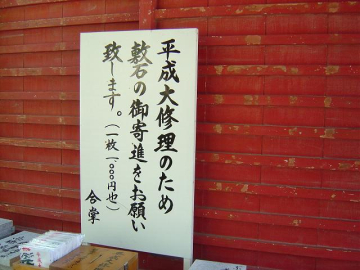 平成大修理のため
敷石の御寄進をお願い
致します。（一枚一、〇〇〇円也）
合掌